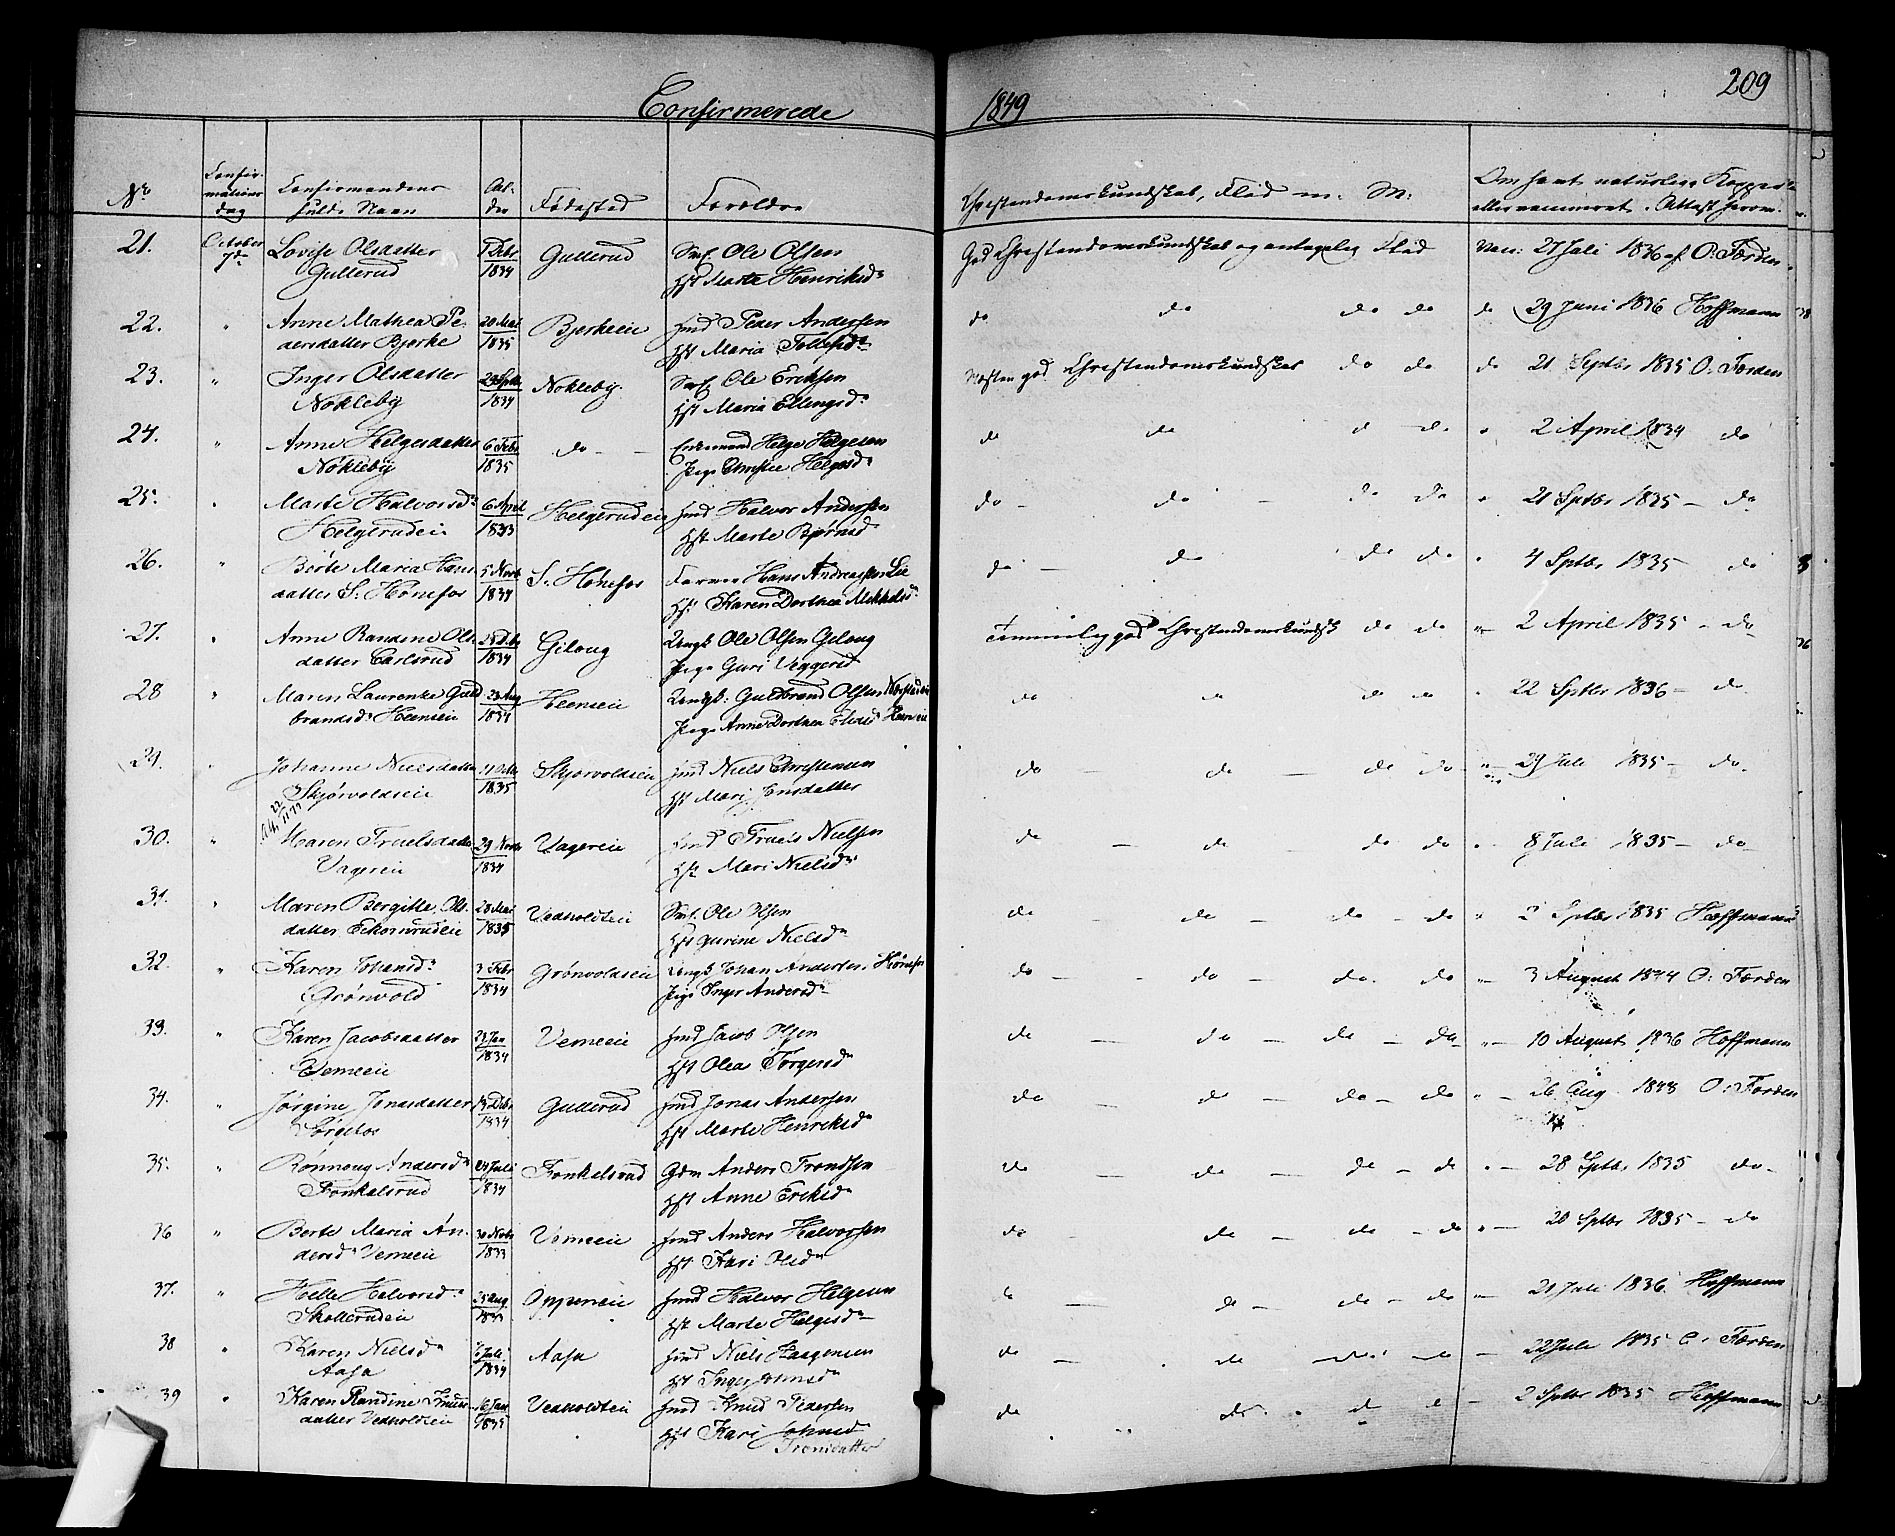 Confirmerede 1849
209
No
Confir-
mations
dag
Confirmandens
fulde Navn
Al-
der
Fødested
Forældre
Christendomskundskab, Flid m: M:
Om havt naturlige Kopper
eller vaccineret. Attest herom.
21. October 7de Lovise Olsdatter Gullerud 1834 Gullerud Ole Olsen Hst Marte Henriksdr God Christendomskundskab og antagelig Flid Vac: 27 Juli 1836 af O: Færden
22. " Anne Mathea Pe-
dersdatter Bjerke 20 Mai 1835 Bjerkeeie Hmd Peder Andersen Hst Maria Tollefsdr do do do do do 29 Juni 1836 Hoffmann
23. " Inger Olsdatter Nokleby 29 Sptbr 1834 Nokleby Ole Eriksen Hst Maria Ellingsdr Næsten god Christendomskundskab do do do 21 Sptbr 1835 O: Færden
24. " Anne Helgesdatter Nokleby 6 Febr 1835 do Enkemand Helge Helgesen Pige Christie Helgesdr do do d do " 2 April 1834 do
25. " Marte Halvorsdr Helgerudeie 6 April 1833 Helgerudeie Hmd Halvor Andersen Hst Marte Bjørnsd do do do do " 21 Sptbr 1835 do
26. " Birte Maria Hans
datter S. Hønefos 5 Novb 1834 S. Hønefos Farver Hans Andreassen Lie Hst Karen Dorthea Mikkelsdr do do do do " 4 Sptbr 1835 do
27. " Anne Randine Ols
datter Carlsrud 1834 Gilaug Ungk Ole Olsen Gilaug Pige Guri Veggerud Temmelig god Christendomskundsk do do " 2 April 1835 do
28 " Maren Laurentze Guld
brandsdr Heeneeie 23 Aug 1834 Heeneeie Ungk: Guldbrand Olsen Pige Anne Dorthea do do do do " 22 Sptbr 1836 do
29. " Johanne Nielsdatter Skjørvoldseie 1835 Skjørvoldseie Hmd Niels Christensen Hst Mari Jensdatter do do do do " 29 Juli 1835 do
30. " Maren Truelsdatter Vagereie 29 Novb 1834 Vagereie Hmd Truels Nielsen Hst Mari Nielsdr do do do do " 8 Juli 1835 do
31. " Maren Bergitte Ols
datter 28 Mai 1835 Vedholdteie Ole Olsen Hst Gurine Nielsdr do do do do " 2 Sptbr 1835 Hoffmann
32. " Karen Johansdr Grønvold 3 Febr 1834 Grønvoldseie Ungk Johan Anders. Hønefos Pige Inger Andersdr do do do do " 3 August 1834 O: Færden
33. " Karen Jacobsdatter Vemeeie 23 Jan 1834 Vemeeie Hmd Jacob Olsen Hst Olea Torgersdr do do do do " 10 August 1836 Hoffmann
34. " Jørgine Jonasdatter 1834 Gullerud Hmd Jonas Andersen Hst Marte Henriksdr do do do do " 26 Aug O: Færden
35. " Rønnaug Andersdr Fonkelsrud 24 Juli 1834 Fonkelsrud Gdm Anders Trondsen Hst Anne Eriksdr do do do do " 28 Sptbr 1835 do
36 " Berte Maria An-
dersdr Vemeeie 30 Novb 1833 Vemeeie Hmd Anders Halvorsen Hst Kari Olsdr do do do do " 20 Sptbr 1835 do
37. " Helle Halvorsdr 25 Aug Oppeneie Hmd Halvor Helgesen Hst Marte Helgesdr do do do do " 21 Juli 1836 Hoffmann
38 " Karen Nielsdr Aasa Juli 1834 Aasa Hmd Niels Haagensen Hst Inger do do do do 22 Juli 1835 O: Færden
39 " Karen Randine Knuds
datter Vedholdteie 16 Jan 1835 Vedholdteie Hmd Knud Pedersen Hst Kari Tronsdatter do do d d 2 Sptbr 1835 Hoffmann